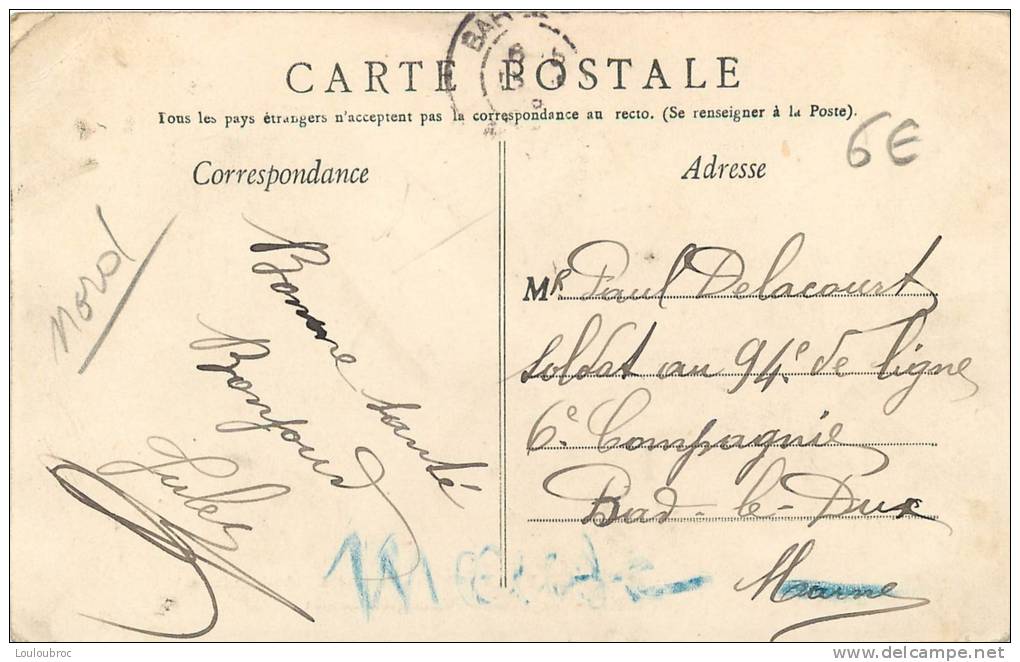 BAR
CARTE POSTALE
Tous les pays étrangers n'acceptent pas la correspondance au recto. (Se renseigner à la Poste).
6€
Correspondance
Adresse
Nord
Bonne santé
Bonjour
Jules
MR Paul Delacourt
soldat au 94e de ligne
6e Compagnie
Bad-le-Duc
Marne
Louloubroc
www.delcampe.net